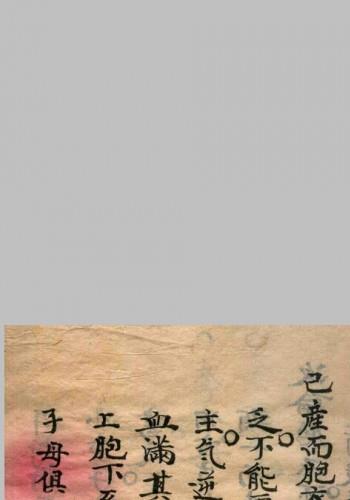 已産而胞
乏。不能
主。气逆
血滿其
工胞下
子母俱